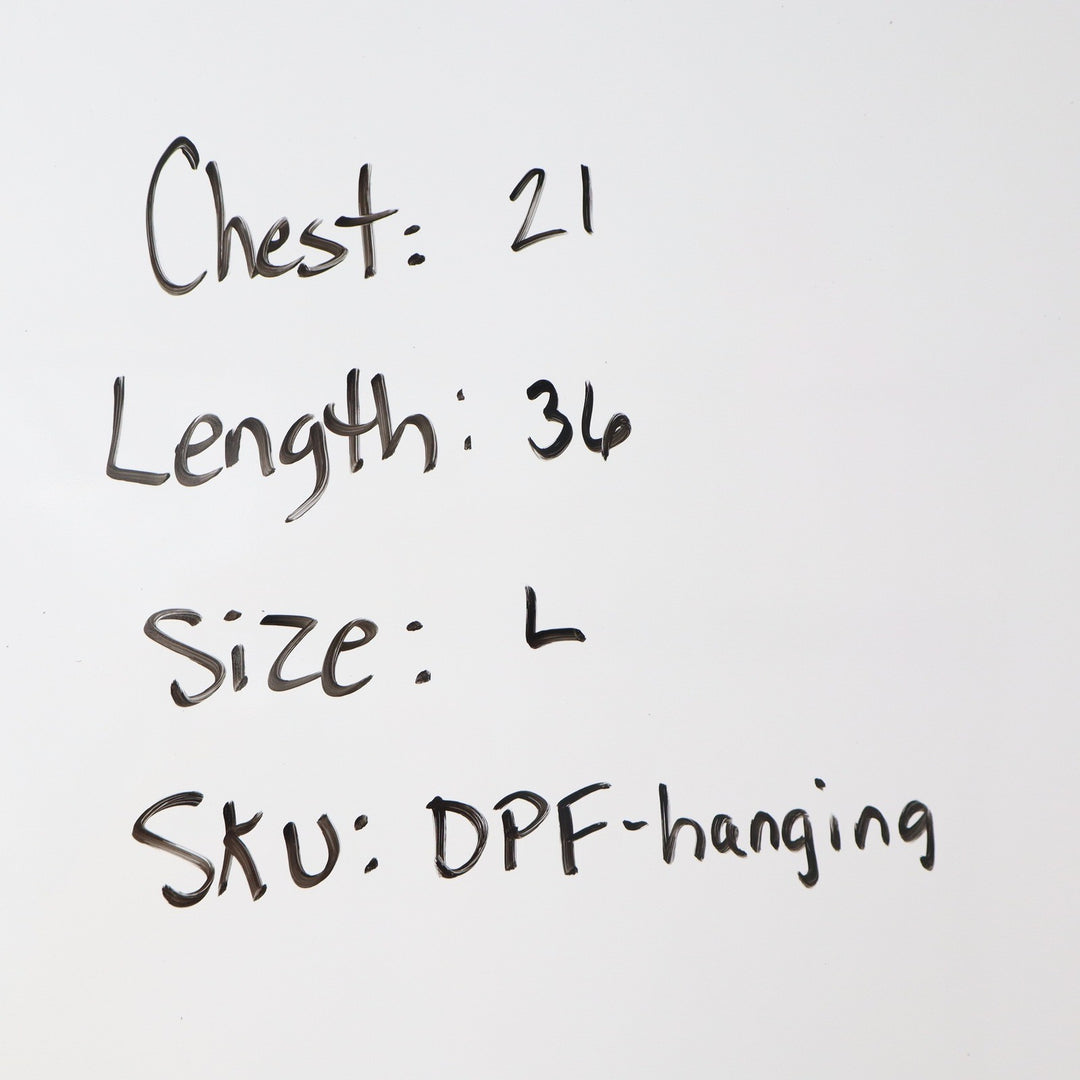 Chest: 21
Length: 36
Size: L
SKU: DPF-hanging